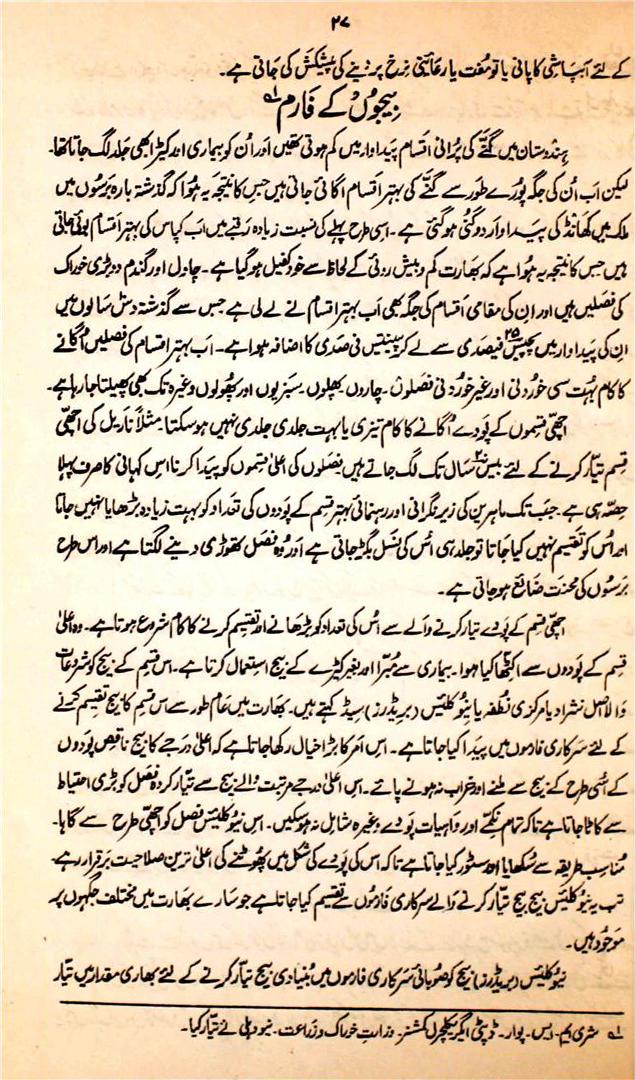 ۲۷
کے لئے آبپاشی کا پانی یا تو مفت یا رعائتی نرخ پر دینے کی پیشکش کی جاتی ہے۔
بیجوں کے فارم ؎۱
ہندوستان میں گنّے کی پرانی اقسام پیداوار میں کم ہوتی تھیں اور اُن کو بیماری اور کیڑا بھی جلد لگ جاتا تھا۔
لیکن اب اُن کی جگہ پورے طور سے گنّے کی بہتر اقسام اگائی جاتی ہیں جس کا نتیجہ یہ ہوا کہ گذشتہ بارہ برسوں میں
ملک میں کھانڈ کی پیداوار دوگنی ہو گئی ہے۔ اسی طرح پہلے کی نسبت زیادہ رقبے میں اب کپاس کی بہتر اقسام بوئی جاتی
ہیں جس کا نتیجہ یہ ہوا ہے کہ بھارت کم و بیش روئی کے لحاظ سے خود کفیل ہو گیا ہے۔ چاول اور گندم دو بڑی خوراک
کی فصلیں ہیں اور ان کی مقامی اقسام کی جگہ بھی اب بہتر اقسام نے لے لی ہے جس سے گذشتہ دس سالوں میں
ان کی پیداوار میں پچیس ۲۵ فیصدی سے لے کر پینتیس فی صدی کا اضافہ ہوا ہے۔ اب بہتر اقسام کی فصلیں اُگانے
کا کام بہت سی خوردنی اور غیر خوردنی فصلوں۔ چاروں۔ پھلوں۔ سبزیوں اور پھولوں وغیرہ تک بھی پھیلتا جا رہا ہے۔
اچھی قسموں کے پودے اُگانے کا کام تیزی یا بہت جلدی جلدی نہیں ہو سکتا مثلاً ناریل کی اچھی
قسم تیار کرنے کے لئے بیس ۲۰ سال تک لگ جاتے ہیں فصلوں کی اعلیٰ قسموں کو پیدا کرنا اس کہانی کا صرف پہلا
حصہ ہی ہے۔ جب تک ماہرین کی زیر نگرانی اور رہنمائی بہتر قسم کے پودوں کی تعداد کو بہت زیادہ بڑھایا نہیں جاتا
اور اُس کو تقسیم نہیں کیا جاتا تو جلد ہی اُس کی نسل بگڑ جاتی ہے اور وہ فصل تھوڑی دینے لگتا ہے اور اس طرح
برسوں کی محنت ضائع ہو جاتی ہے۔
اچھی قسم کے پودے تیار کرنے والے سے اُس کی تعداد کو بڑھانے اور تقسیم کرنے کا کام شروع ہوتا ہے۔ وہ اعلیٰ
قسم کے پودوں سے اکٹھا کیا ہوا۔ بیماری سے مبّرا اور بغیر کیڑے کے بیج استعمال کرتا ہے۔ اس قسم کے بیج کو شروعات
والا اصل نشر ادیا مرکزی نطفہ یا نیوکلیئس (بریڈرز) سیڈ کہتے ہیں۔ بھارت میں عام طور سے اس قسم کا بیج تقسیم کرنے
کے لئے سرکاری فارموں میں پیدا کیا جاتا ہے۔ اس امر کا بڑا خیال رکھا جاتا ہے کہ اعلیٰ درجے کا بیج ناقص پودوں
کے اُسی طرح کے بیج سے ملنے اور خراب نہ ہونے پائے۔ اس اعلیٰ درجے مرتبت والے بیج سے تیار کردہ فصل کو بڑی احتیاط
سے کاٹا جاتا ہے تاکہ تمام نکمّے اور واہیات پودے وغیرہ شامل نہ ہو سکیں۔ اس نیوکلیئس فصل کو اچھی طرح سے گاہا۔
مناسب طریقہ سے سُکھایا اور سٹور کیا جاتا ہے تاکہ اس کی پودے کی شکل میں پھوٹنے کی اعلیٰ ترین صلاحیت برقرار رہے۔
تب یہ نیوکلیئس بیج بیج تیار کرنے والے سرکاری فارموں سے تقسیم کیا جاتا ہے جو سارے بھارت میں مختلف جگہوں پر
موجود ہیں۔
نیوکلیئس (بریڈرز) بیج کو صوبائی سرکاری فارموں میں بنیادی بیج تیار کرنے کے لئے بھاری مقدار میں تیار
؎۱ شری ایم۔ ایس۔ پوار۔ ڈپٹی ایگریکلچرل کمشنر۔ وزارتِ خوراک و زراعت۔ نیو دہلی نے تیار کیا۔